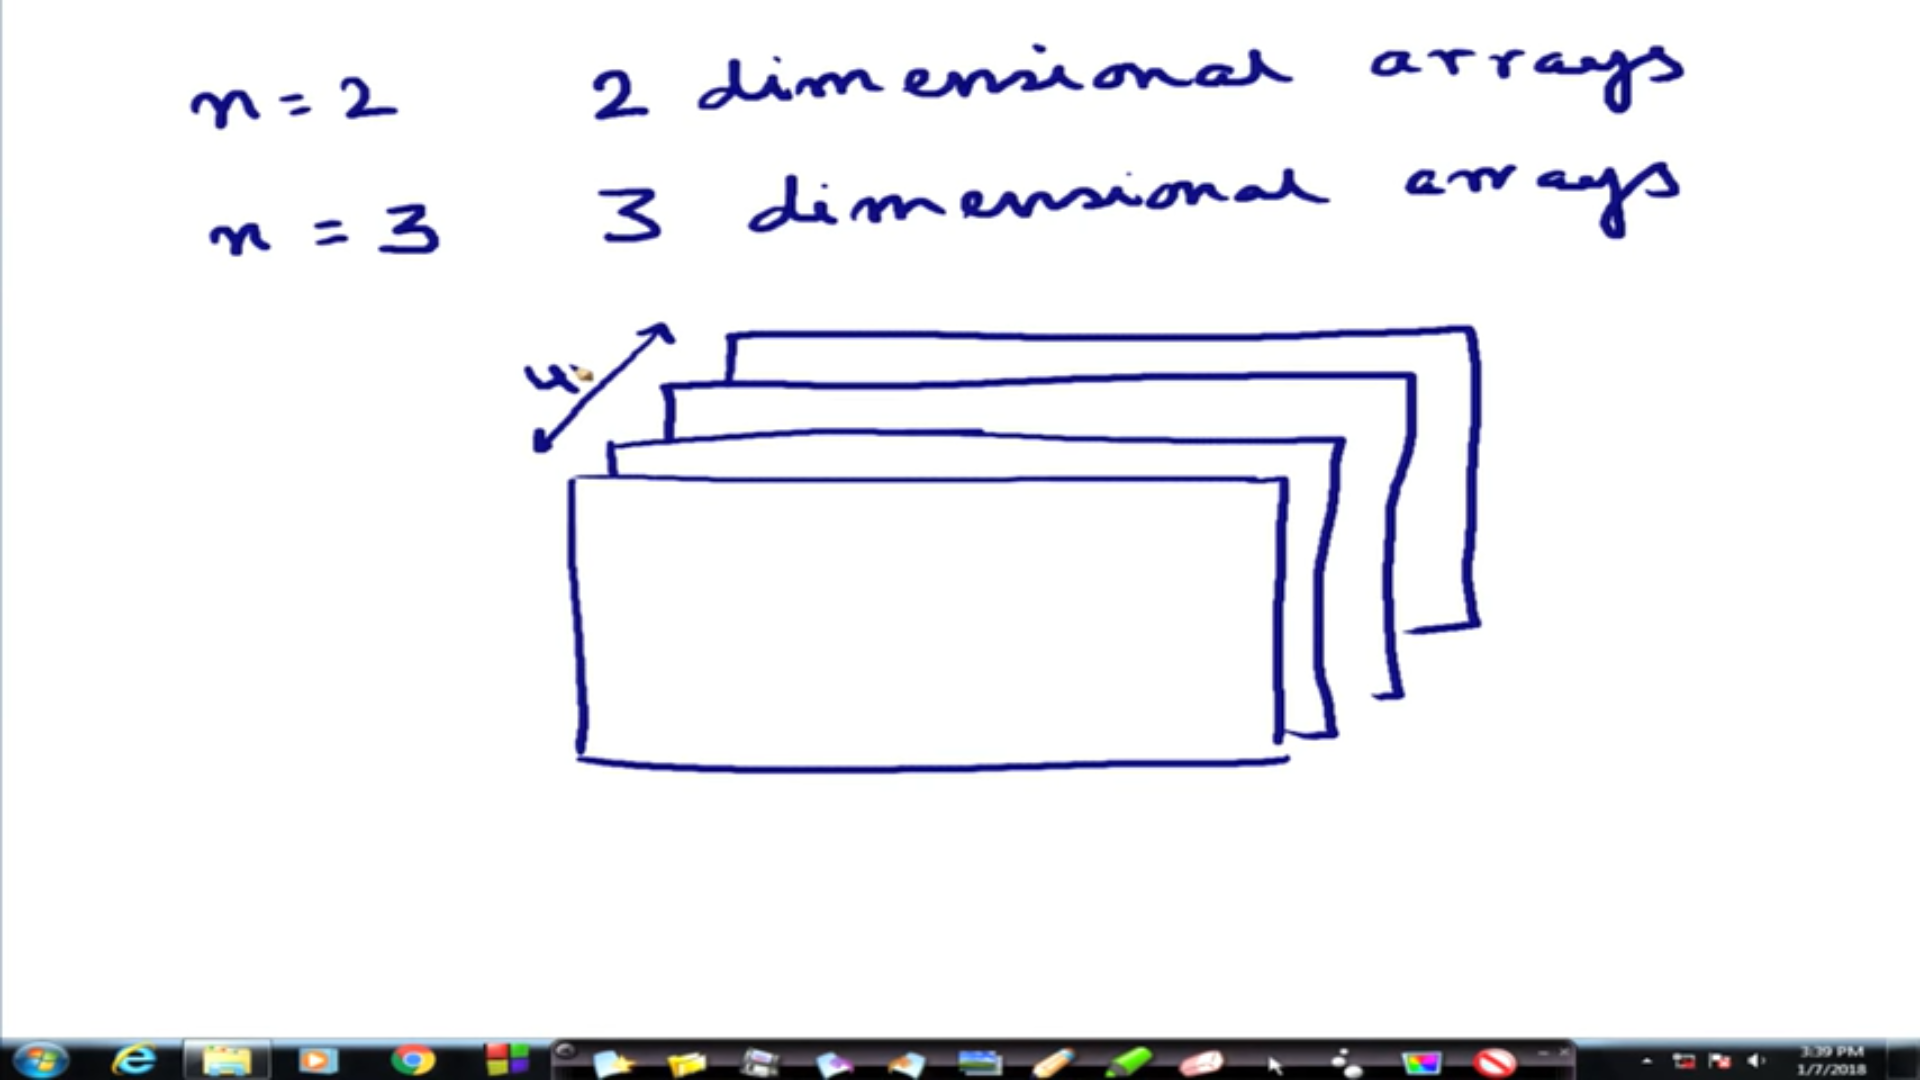 n = 2 2 dimensional arrays
n = 3 3 dimensional arrays
4
3:39 PM
1/7/2018